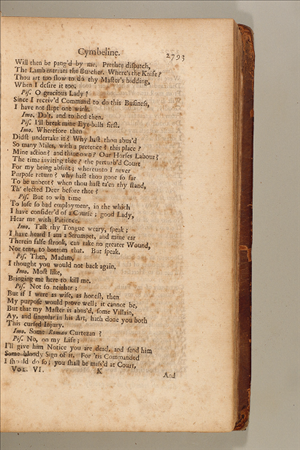 Cymbeline.
2793
Will then be pang'd by me. Prethee dispatch,
The Lamb entreats the Butcher. Where's the Knife?
Thou art too slow to do thy Master's bidding,
When I desire it too.
Pis. O gracious Lady!
Since I receiv'd Command to do this Business,
I have not slept one wink.
Imo. Do't, and to bed then.
Pis. I'll break mine Eye-balls first.
Imo. Wherefore then
Didst undertake it? Why hast thou abus'd
So many Miles, with a pretence? this place?
Mine action? and thine own? Our Horses Labour?
The time inviting thee? the perturb'd Court
For my being absent; whereunto I never
Purpose return? why hast thou gone so far
To be unbent? when thou hast ta'en thy stand,
Th' elected Deer before thee?
Pis. But to win time
To lose so bad employment, in the which
I have consider'd of a Course; good Lady,
Hear me with Patience.
Imo. Talk thy Tongue weary, speak;
I have heard I am a Strumpet, and mine ear
Therein false strook, can take no greater Wound,
Nor tent, to bottom that. But speak.
Pis. Then, Madam,
I thought you would not back again.
Imo. Most like,
Bringing me here to kill me.
Pis. Not so neither;
But if I were as wise, as honest, then
My purpose would prove well; it cannot be,
But that my Master is abus'd, some Villain,
Ay, and singular in his Art, hath done you both
This cursed Injury.
Imo. Some Roman Curtezan?
Pis. No, on my Life;
I'll give him Notice you are dead, and send him
Some bloody Sign of it, For 'tis Commanded
I should do so; you shall be miss'd at Court,
Vol. VI. K And